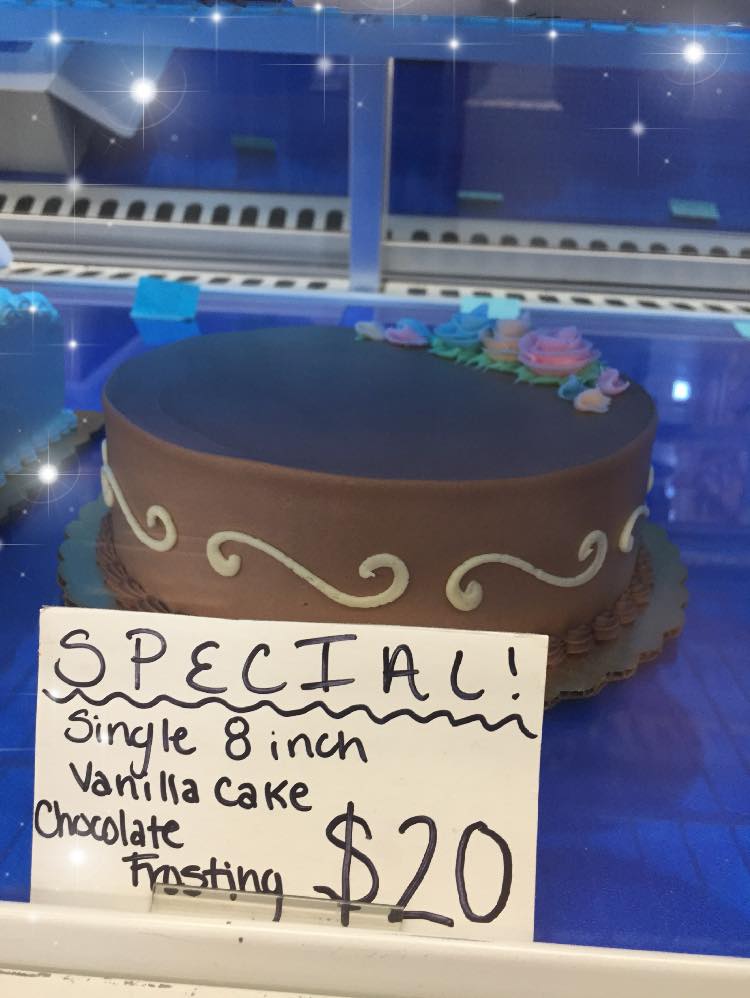 SPECIAL!
Single 8 inch
Vanilla cake
Chocolate
Frosting $20